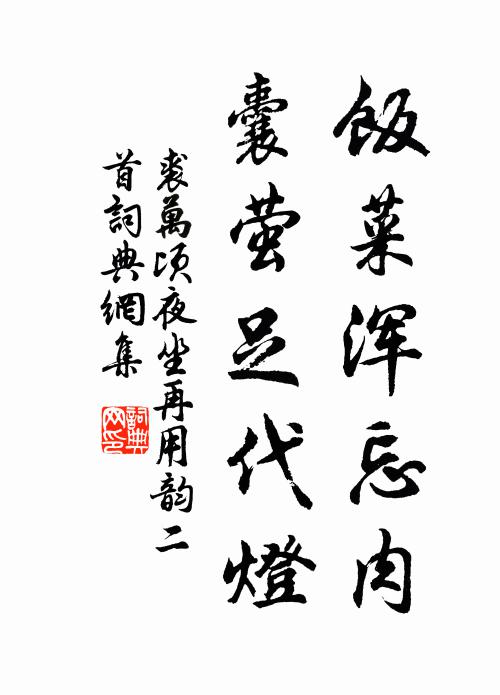 飯菜浑忘肉
囊萤足代燈
裘萬顷夜坐再用韵二
首詞典網集
詞典網印